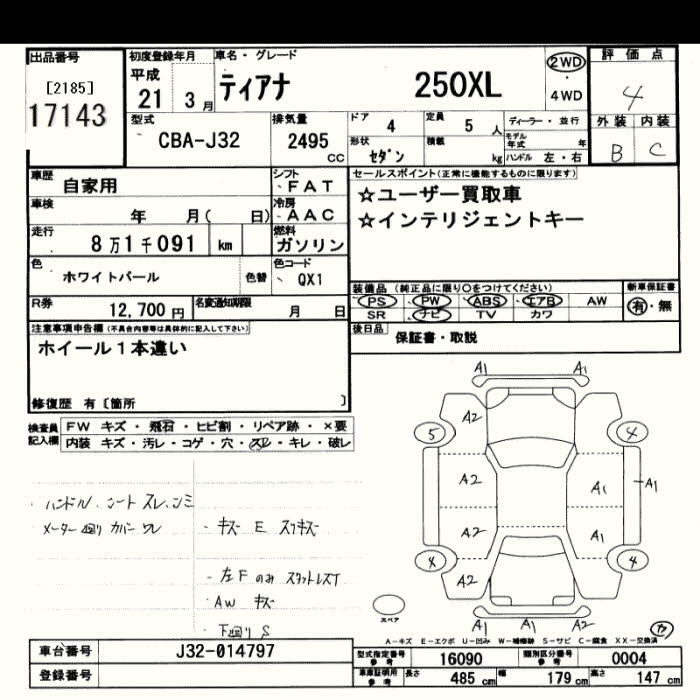 出品番号
[2185]
17143
初度登録年月
平成
21 3月
車名・グレード
ティアナ 250XL
2WD
4WD
評価点
4
外装 内装
B C
型式
CBA-J32
排気量
2495
cc
ドア 4
定員 5 人
形状 セダン
積載 kg
ディーラー・並行
モデル年式 年
ハンドル 左・右
車歴 自家用
シフト FAT
車検 年 月( 日)
冷房 AAC
走行 8万1千091 km
燃料 ガソリン
色 ホワイトパール 色替
色コード QX1
R券 12,700円
名変通知期限 月 日
セールスポイント(正常に機能するものに限ります)
☆ユーザー買取車
☆インテリジェントキー
装備品(純正品に限り○をつけてください)
PS PW ABS エアB AW
SR ナビ TV カワ
新車保証書
有・無
後日品 保証書・取説
注意事項申告欄(不具合内容等は具体的に記入して下さい)
ホイール1本違い
修復歴 有〔箇所 〕
検査員記入欄
FW キズ・飛石・ヒビ割・リペア跡・×要
内装 キズ・汚レ・コゲ・穴・スレ・キレ・破レ
・ハンドル、シート スレ、シミ
メーター廻り カバー ワレ
・キズ E スリキズ
・左Fのみ スタットレスT
・AW キズ
・下廻り S
A1 A1
A2
5 4
A2 A1 A1
A2 A1
4
A2
A1 A1 A2
スペア
A-キズ E-エクボ U-凹み W-補修跡 S-サビ C-腐食 XX-交換済
車台番号 J32-014797
登録番号
型式指定番号 参考 16090
類別区分番号 参考 0004
車庫証明用 参考 長さ 485 cm 幅 179 cm 高さ 147 cm